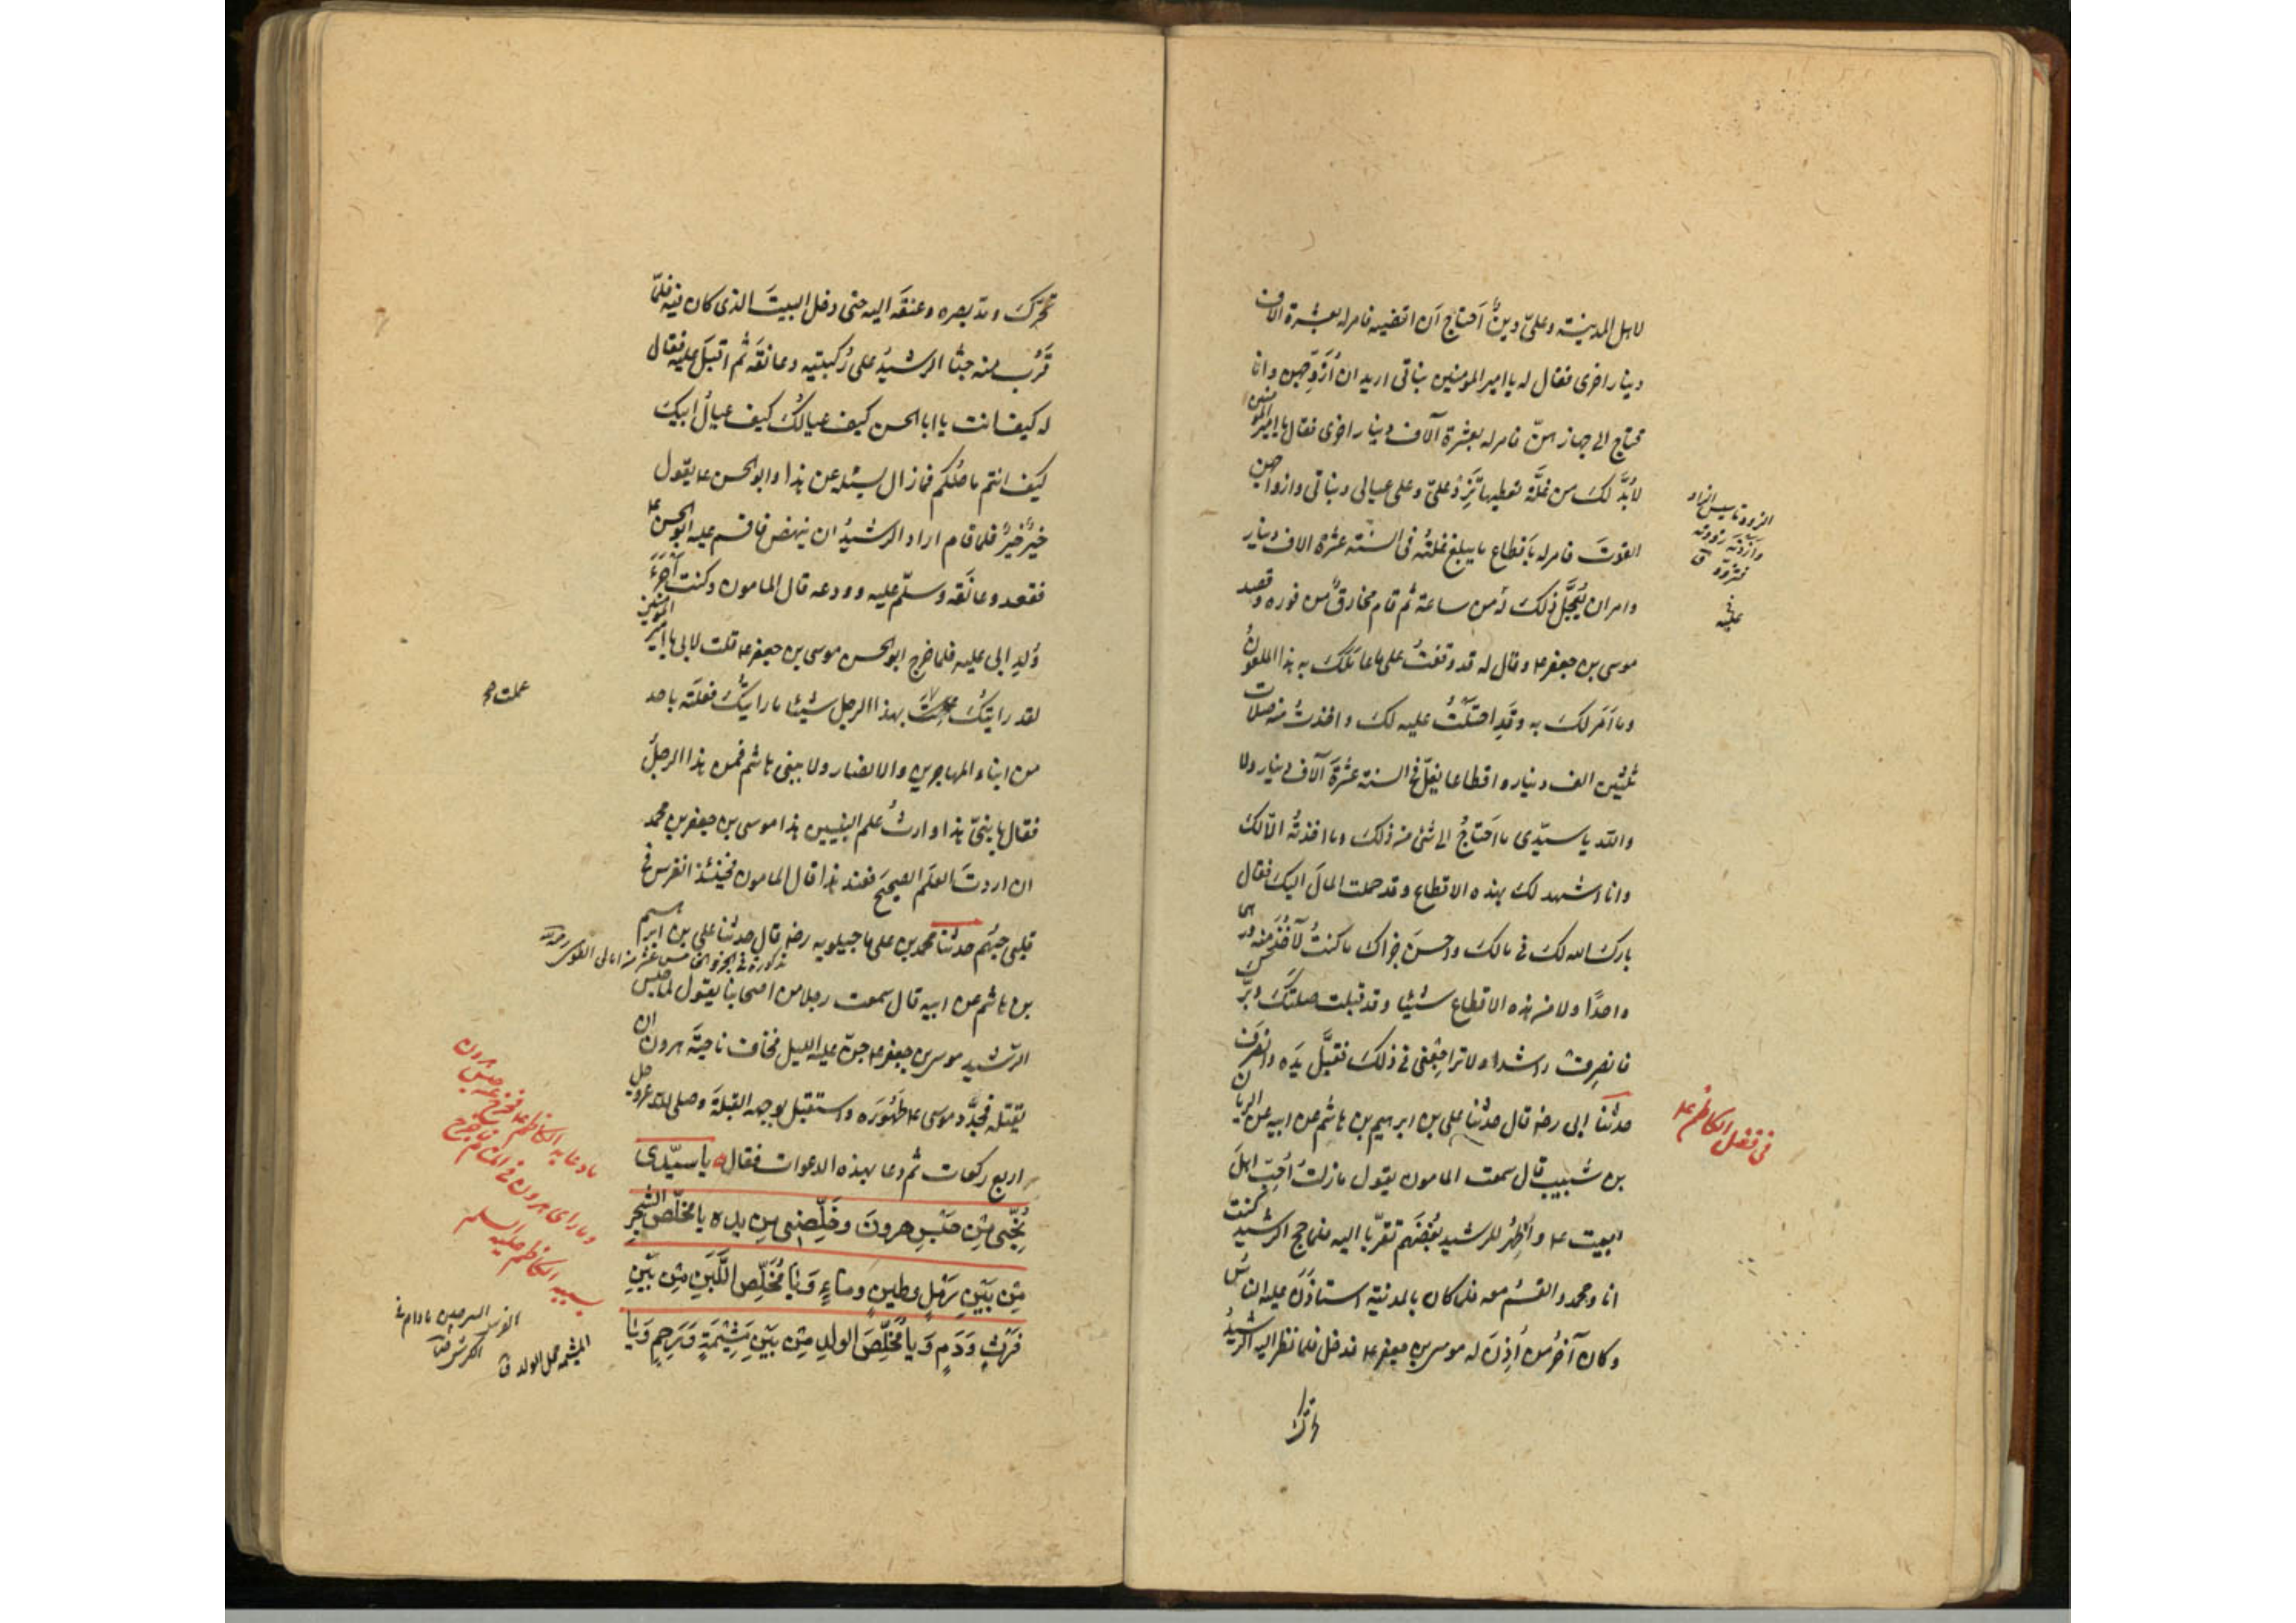 لاهل المدينة وعليّ دينٌ أحتاج أن اقضيه فامر له بعشرة الاف
دينار اخرى فقال له يا امير المؤمنين بناتى اريد ان أزوّجهن وانا
محتاج الى جهازهنّ فامر له بعشرة آلاف دينار اخرى فقال يا امير المؤمنين
لابُدّ لك من غلّة تعطيها تَرُدّ علىّ وعلى عيالى وبناتى وازواجهن
القوتَ فامر له باَقطاع ما يبلغ غلّتُه فى السّنة عشرة الاف دينار
وامر ان يُعجَّل ذلك له من ساعته ثم قام مخارقٌ من فوره وقصد
موسى بن جعفر ع وقال له قد وقفتُ على ما عامَلَكَ به هذا الملعونُ
وما اَمَر لك به وقَدِ احتَلْتُ عليه لك واخذتُ منه صلات
ثلثين الف دينار واقطاعا يغلّ فى السنة عشرةَ آلاف دينار ولا
والله يا سيّدى ما اَحتاجُ الى شئ من ذلك وما اخذتُه الّا لك
وانا اشهد لك بهذه الاقطاع وقد حملت المالَ اليك فقال
بارك الله لك فى مالك واحسنَ جزاك ما كنتُ لآخُذَ منه درهما
واحدًا ولا من هذه الاقطاع شيئا وقد قبلت صلتَكَ وبِرّكَ
فانصرِفْ راشدا ولا تراجِعْنى فى ذلك فقبَّل يَدَه وانصَرَفَ
حدثنا ابى رضه قال حدثنا على بن ابرهيم بن هاشم عن ابيه عن الريان
بن شبيب قال سمعت المامون يقول مازلتُ اُحِبّ اهلَ
البيت ع واُظهِرُ للرشيد بُغضَهم تقرّبا اليه فلما حج الرشيد كنت
انا ومحمد والقسمُ معه فلما كان بالمدينة استأذَنَ عليه الناسُ
وكان آخرُ من أذِنَ له موسى بن جعفر ع فدخل فلما نظر اليه الرشيدُ
فى فضل الكاظم ع
تحرّكَ ومدّ بصره وعنقَه اليه حتى دخل البيتَ الذى كان فيه فلمّا
قَرُبَ منه جثا الرشيدُ على رُكبتيه وعانقَه ثم اقبَلَ عليه فقال
له كيف انت يا ابا الحسن كيف عيالُك كيف عيالُ ابيك
كيف انتم ما حالُكم فما زال يسئله عن هذا وابو الحسن ع يقول
خيرٌ خيرٌ فلما قام اراد الرشيدُ ان ينهض فاقسم عليه ابو الحسن ع
فقعد وعانَقه وسلّم عليه وودعه قال المامون وكنت أجرَءَ
وُلدِ ابى عليه فلما خرج ابو الحسن موسى بن جعفر ع قلت لابى يا امير المؤمنين
لقد رايتُكَ عملت بهذا الرجل شيئا ما رايتُك فعلتَه باحد
عملت
من ابناء المهاجرين والانصار ولا ببنى هاشم فمن هذا الرجلُ
فقال يا بنىّ هذا وارثُ علم النبيين هذا موسى بن جعفر بن محمد
ان اردتَ العلمَ الصحيحَ فعند هذا قال المامون فحينئذ انغرس فى
قلبى حبُّهم حدثنا محمد بن على ماجيلويه رضه قال حدثنا على بن ابرهيم
بن هاشم عن ابيه قال سمعت رجلا من اصحابنا يقول لما حبس
الرّشيد موسى بن جعفر ع جنّ عليه الليل فخاف ناحيةَ هرون ان
يقتله فجدَّد موسى ع طهُورَه واستقبل بوجهه القبلةَ وصلى لله عزوجل
اربع ركعات ثم دعا بهذه الدعوات فقال يا سيّدى
نَجِّنى مِن حَبْسِ هرونَ وخَلِّصنى مِن يده يا مخلّصَ الشجرِ
مِن بَيْنِ رَملٍ وطينٍ وماءٍ وَيا مُخَلِّصَ اللَّبَنِ مِن بَيْنِ
فَرثٍ وَدَمٍ وَيا مُخَلِّصَ الولدِ مِن بَيْنِ مَشِيْمَةٍ وَرَحِمٍ وَيا
ما دعا به الكاظم ع فخرج من حبس هرون
وما راى هرون فى المنام
الفرث السرجين مادام فى الكرش
المشيمة محل الولد ق